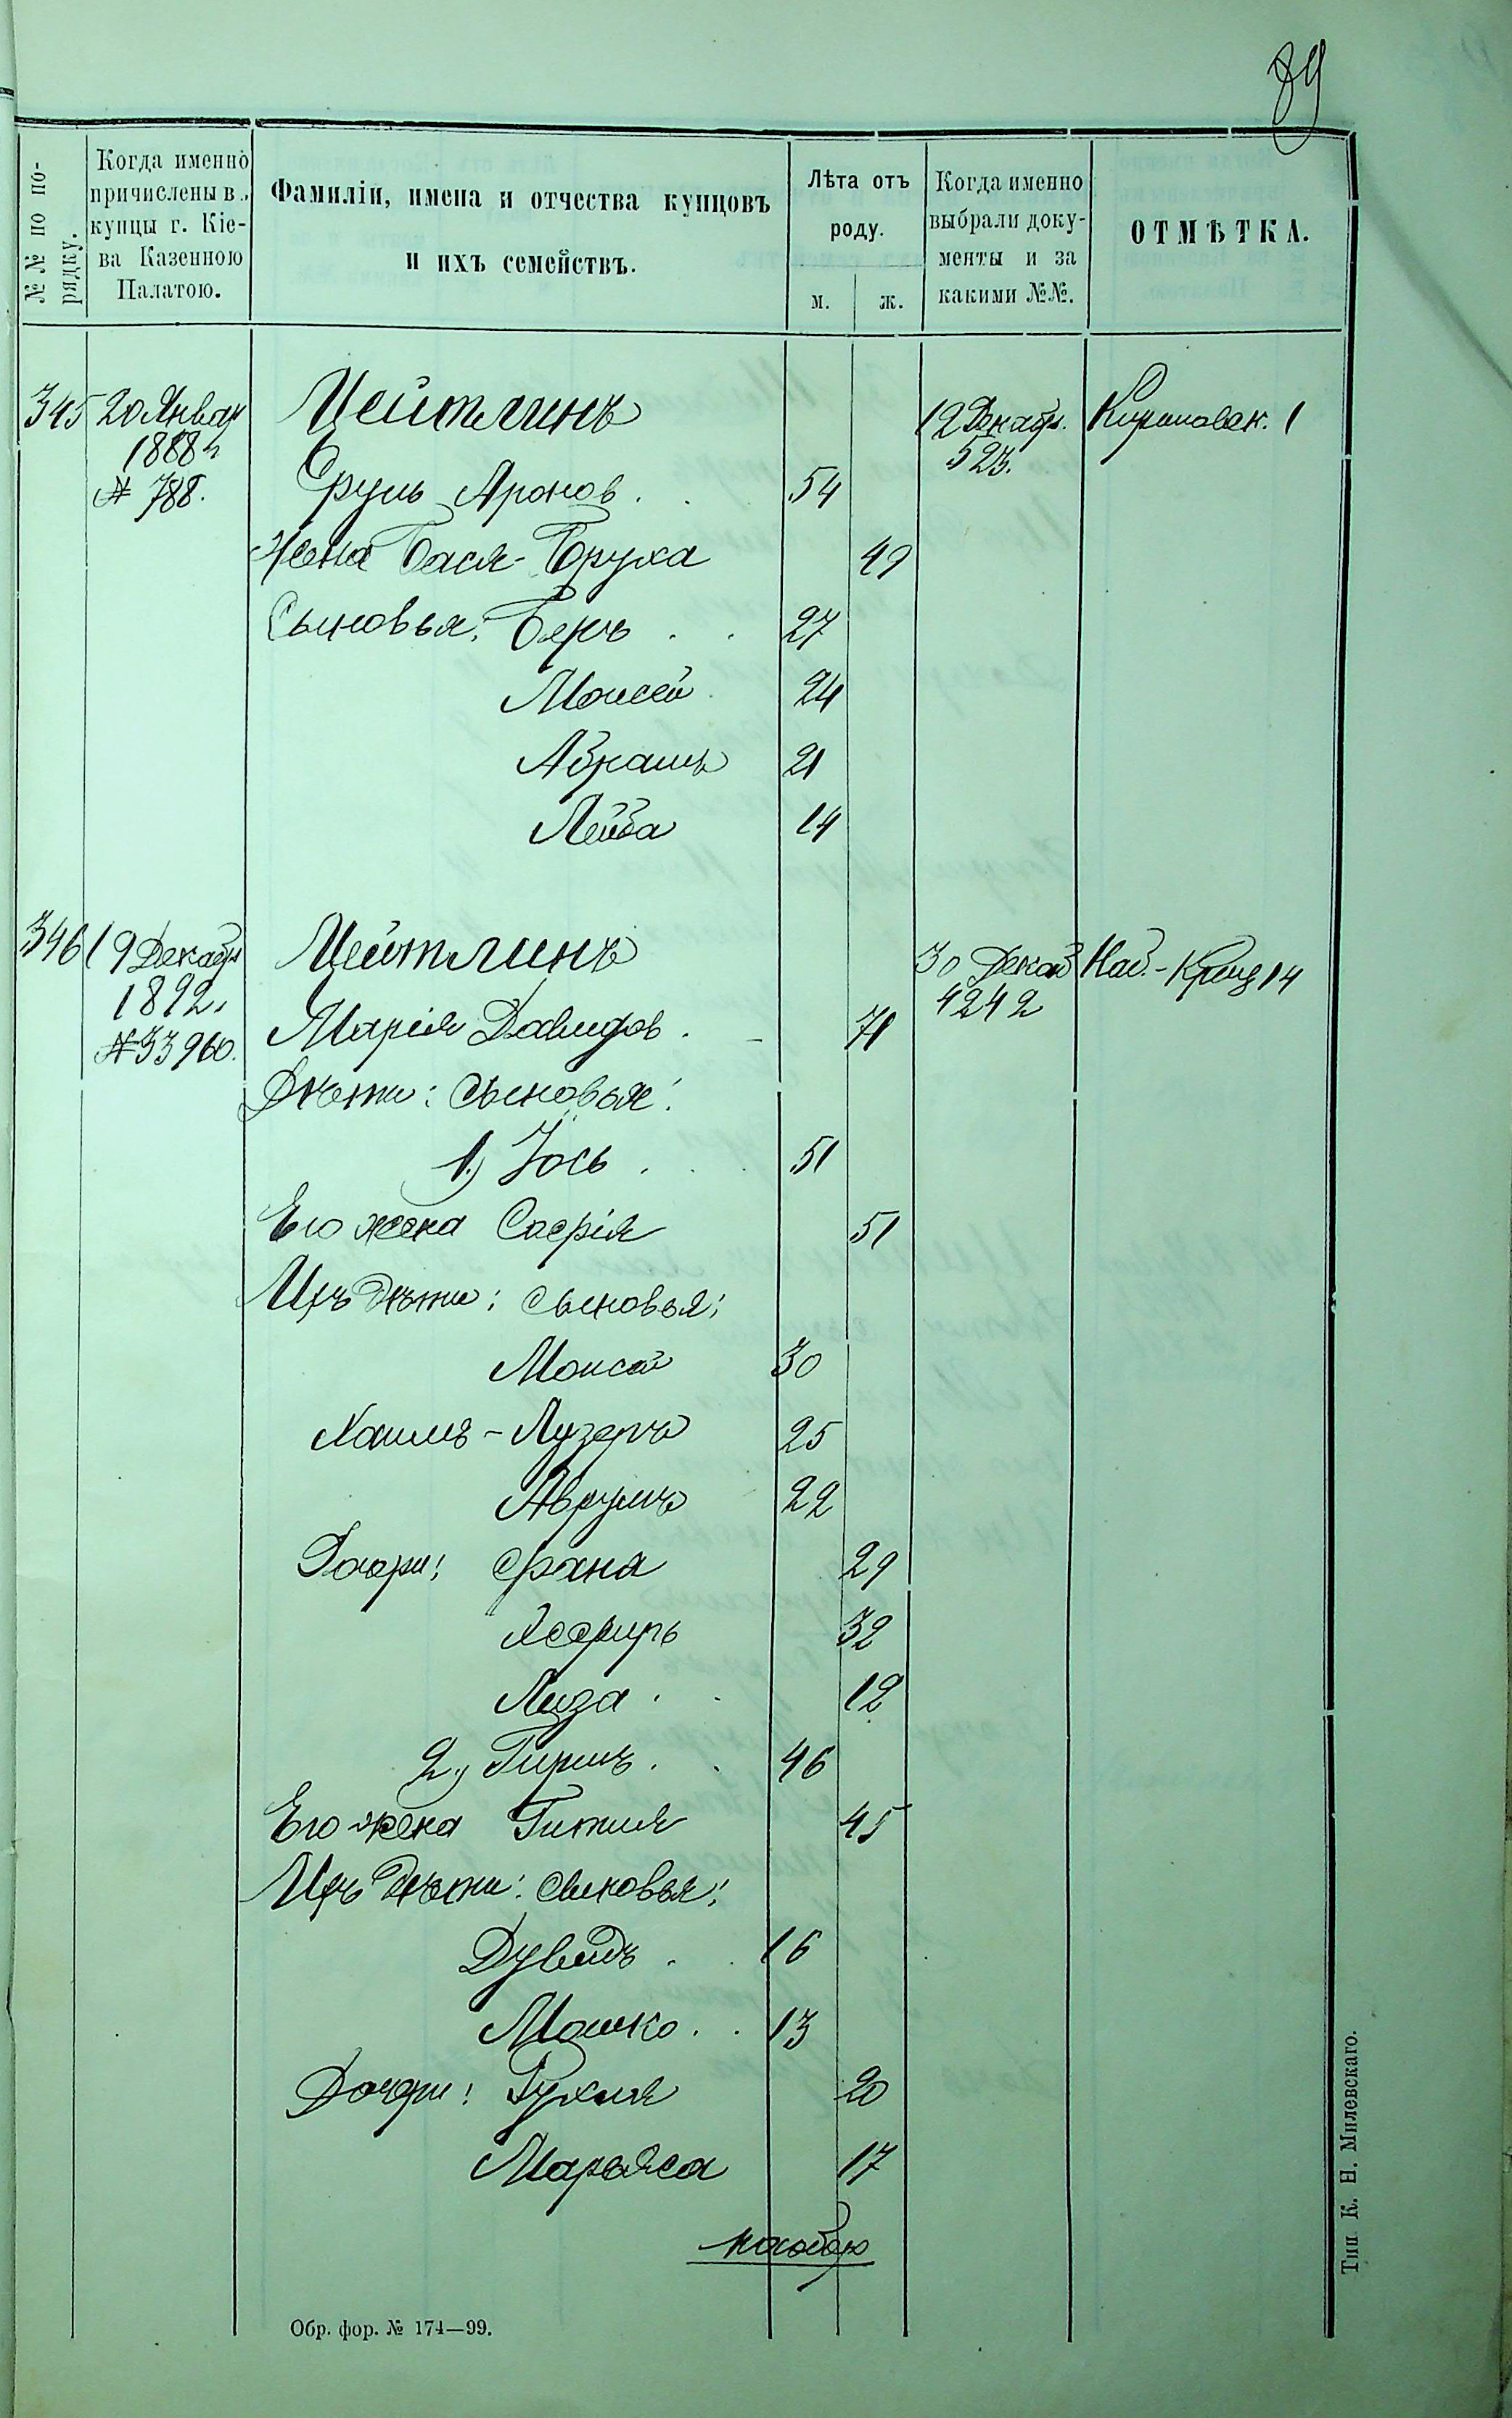 89
№№ по по-
рядку.
Когда именно
причислены в
купцы г. Кіе-
ва Казенною
Палатою.
Фамиліи, имена и отчества купцовъ
и ихъ семействъ.
Лѣта отъ
роду.
м. ж.
Когда именно
выбрали доку-
менты и за
какими №№.
ОТМѢТКА.
345 20 Январ Цейтлинъ 12 Декабр. Кириловск. 1
1888 г. 523.
№ 788. Сруль Аронов. 54
Жена Бася-Бруха 49
Сыновья: Беръ 27
Моисей 24
Абрамъ 21
Лейба 14
346 19 Декабр Цейтлинъ 30 Декаб Наб.-Крещ 14
1892. 4242
№ 33960. Марія Давидов. 71
Дѣти: сыновья:
1) Іось 51
Его жена Софія 51
Ихъ дѣти: сыновья:
Моисей 30
Хаимъ-Лузеръ 25
Аврумъ 22
Дочери: Фаня 29
Эсфирь 32
Лиза 12
2) Гиршъ 46
Его жена Гитля 45
Ихъ дѣти: сыновья:
Дувидъ 16
Мошко 13
Дочери: Рухля 20
Марьяса 17
Обр. фор. № 174—99.
Тип К. Н. Милевскаго.